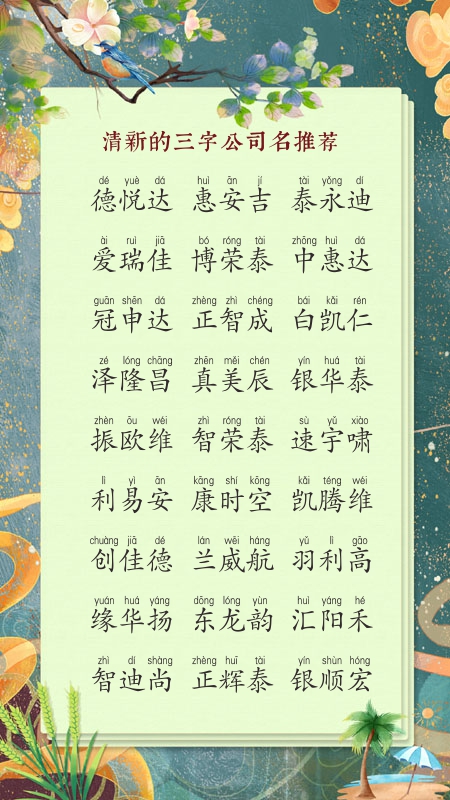 清新的三字公司名推荐
dé yuè dá huì ān jí tài yǒng dí
德悦达 惠安吉 泰永迪
ài ruì jiā bó róng tài zhōng huì dá
爱瑞佳 博荣泰 中惠达
guān shēn dá zhèng zhì chéng bái kǎi rén
冠申达 正智成 白凯仁
zé lóng chāng zhēn měi chén yín huá tài
泽隆昌 真美辰 银华泰
zhèn ōu wéi zhì róng tài sù yǔ xiào
振欧维 智荣泰 速宇啸
lì yì ān kāng shí kōng kǎi téng wéi
利易安 康时空 凯腾维
chuàng jiā dé lán wēi háng yǔ lì gāo
创佳德 兰威航 羽利高
yuán huá yáng dōng lóng yùn huì yáng hé
缘华扬 东龙韵 汇阳禾
zhì dí shàng zhèng huī tài yín shùn hóng
智迪尚 正辉泰 银顺宏